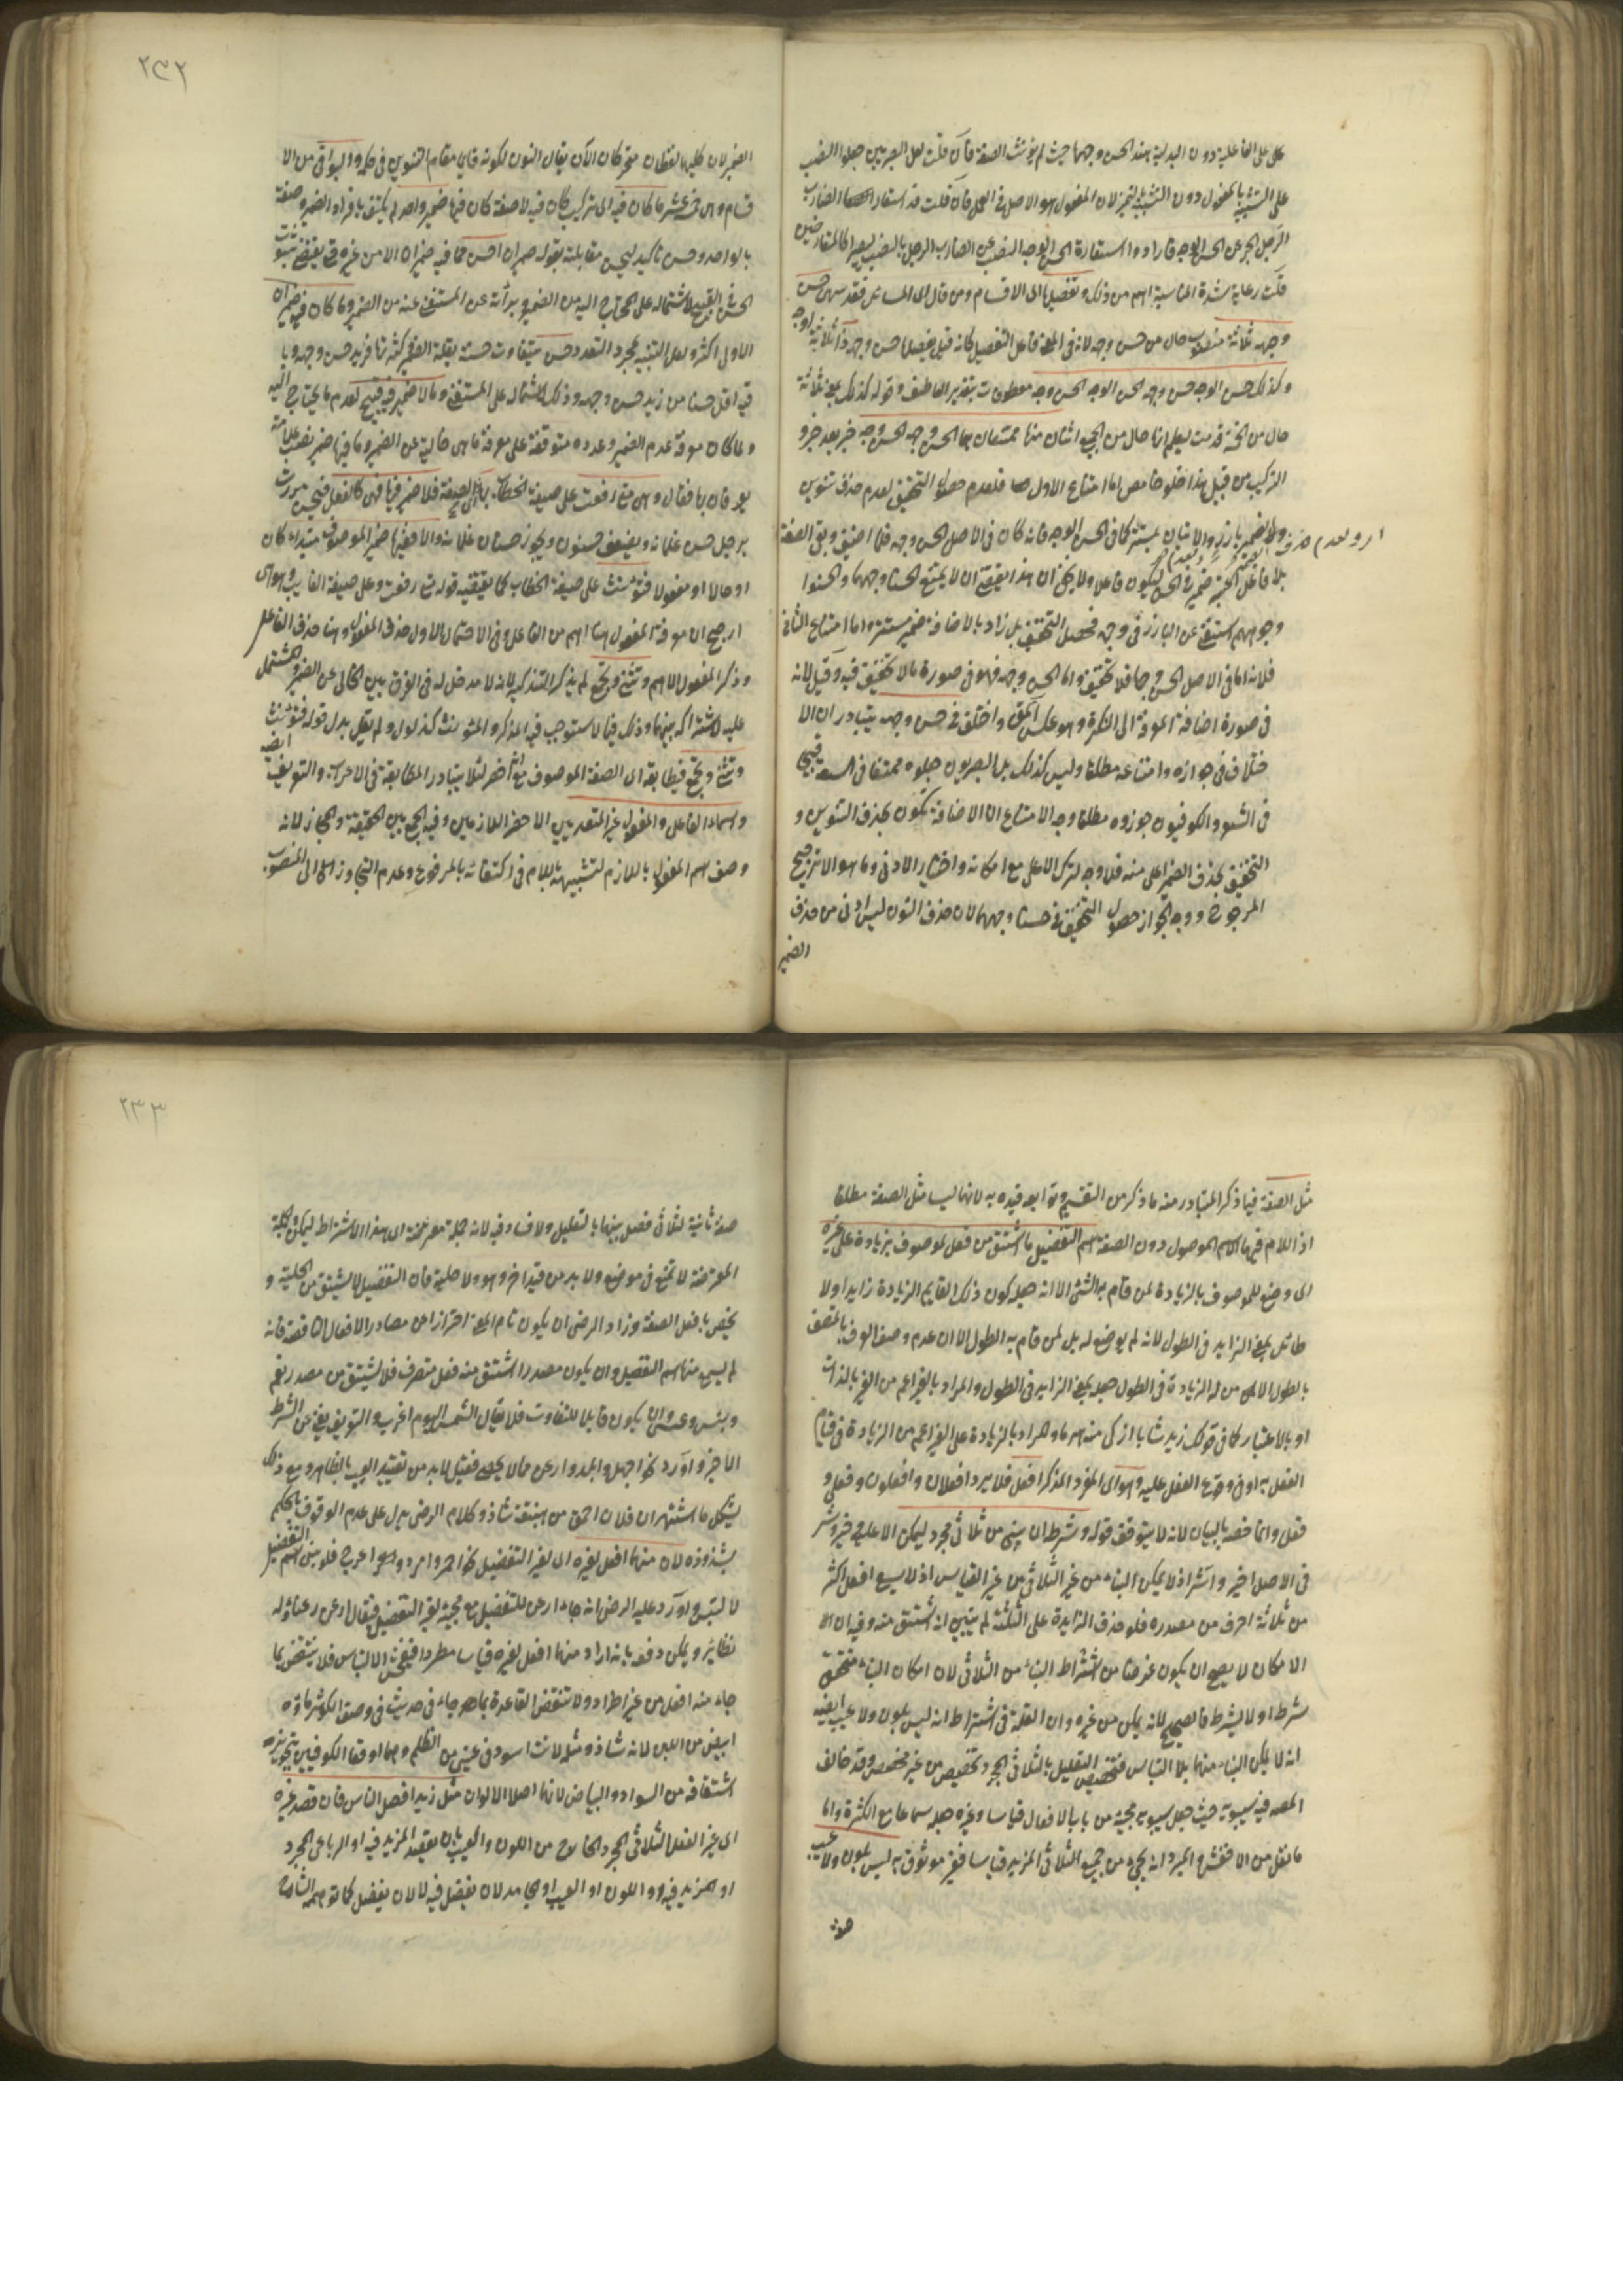 على الفاعلية دون البدلية هند الحسن وجهها حيث لم يؤنث الصفة فان قلت لعل البصريين جعلوا النصب
على التشبيه بالمفعول دون التشبيه بالتمييز لان المفعول هو الاصل في العمل فان قلت قد استعار الضارب
الرجل الجر عن الحسن الوجه فارادوا استعارة الحسن الوجه النصب عن الضارب الرجل بالنصب ليصيرا كالمتقارضين
قلت رعاية شدة المناسبة اهم من ذلك وتفصيلها الى الاقسام ومن قال الى المسائل فقد سهى حسن
وجهه ثلاثة منصوب حال من حسن وجهه لانه في المعنى فاعل التفصيل كانه قيل تفصيلها حسن وجهه ذا ثلاثة اوجه
وكذلك حسن الوجه حسن وجه الحسن الوجه الحسن وجه معطوفات بتقدير العاطف وقوله كذلك بمعنى ثلاثة
حال من الخمسة قدمت ليعلم انها حال من الجميع اثنان منها ممتنعان هما الحسن وجهه الحسن وجه خبر بعد خبر و
التركيب من قبيل هذا حلو حامض اما امتناع الاول فلعدم حصول التخفيف لعدم حذف تنوين
ولا ضمير بارز والاتيان بمستتر كما في الحسن الوجه فانه كان في الاصل الحسن وجهه فلما اضيف وبقي الصفة
او لعدم حذف
بلا فاعل ضمير في الحسن ليكون فاعلا ولا يخفى ان هذا يقتضي ان لا يمتنع الحسنا وجههما والحسنوا
وجوههم استغنى عن البارز في وجهه فحصل التخفيف بل زاد بالاضافة ضمير مستتر واما امتناع الثاني
فلانه اما في الاصل الحسن وجها فلا تخفيف واما الحسن وجهه فهو في صورة ما لا تخفيف فيه وقيل لانه
في صورة اضافة المعرفة الى النكرة وهو عكس الحق واختلف في حسن وجهه يتبادر ان الا
ختلاف في جوازه وامتناعه مطلقا وليس كذلك بل البصريون جعلوه ممتنعا في السعة قبيحا
في الشعر والكوفيون جوزوه مطلقا وجه الامتناع ان الاضافة تكون بحذف التنوين و
التخفيف بحذف الضمير اعلى منه فلا وجه لترك الاعلى مع امكانه واختيار الادنى وما هو الا ترجيح
المرجوح ووجه الجواز حصول التخفيف في حسنا وجههما لان حذف النون ليس ادنى من حذف
الضمير
٢٣٢
الضمير لان كليهما لفظان متحركان الآن يقال النون لكونه قايما مقام التنوين في حكمه والبواقي من الا
قسام وهي خمسة عشر ما كان فيه اي تركيب كان فيه لا صفة كان فيها ضمير واحد لم يكتف بافراد الضمير وصفه
بالواحد وحسن تاكيد ليحسن مقابلته بقوله ضميران احسن مما فيه ضميران الامن غيره حتى يقتضي ثبوت
الحسن في القبيح لاشتماله على المحتاج اليه من الضمير وبرأته عن المستغنى عنه من الضمير وما كان فيه ضميران
الاولى اكثر ولعل التثنية لمجرد التعدد حسن متفاوت حسنه بقلة الضمير وكثرته فزيد حسن وجهه ويا
فيه اقل حسنا من زيد حسن وجهه وذلك لاشتماله على المستغنى وما لا ضمير فيه قبيح لعدم ما يحتاج اليه
ولما كان معرفة عدم الضمير وعدده متوقفة على معرفة ما هي خالية عن الضمير وما فيها ضمير نصب علامة
يعرفان بها فقال ومتى رفعت على صيغة الخطاب بها اي الصفة فلا ضمير فيها فهي كالفعل فيحسن مررت
برجل حسن غلمانه ويضعف حسنون ويجوز حسان غلمانه والا ففيها ضمير الموصوف مبتداء كان
او حالا او مفعولا فتؤنث على صيغة الخطاب كما يقتضيه قوله متى رفعت وعلى صيغة الغايب وهو
ارجح ان معرفة المفعول هنا اهم من الفاعل وفي الاحتمال الاول حذف المفعول وهنا حذف الفاعل
وذكر المفعول الاهم وتثنى وتجمع لم يذكر التذكير لانه لا مدخل له في الفرق بين الخالي عن الضمير والمشتمل
عليه لاشتراكه بينهما وذلك فيما لا يستوجب فيه المذكر والمؤنث كذلول ولم يقل بدل قوله فتؤنث
وتثنى وتجمع فيطابقه اي الصفة الموصوف مع انه اخصر لئلا يتبادر المطابقة في الاعراب والتعريف ايضا
واسماء الفاعل والمفعول غير المتعديين الاخصر اللازمين وفيه الجمع بين الحقيقة والمجاز لانه
وصف اسم المفعول باللازم لتشبيهه باللازم في اكتفائه بالمرفوع وعدم التجاوز الى المنصوب
مثل الصفة فيما ذكر المتبادر منه ما ذكر من التقسيم وتوابعه قيده به لانها ليسا مثل الصفة مطلقا
اذ اللام فيهما الاسم الموصول دون الصفة اسم التفضيل ما اشتق من فعل لموصوف بزيادة على غيره
اي وضع للموصوف بالزيادة لمن قام به الشئ الا انه جعله كون ذلك القايم الزيادة زايدا ولا
طائل بمعنى الزايد في الطول لانه لم يوضع له بل لمن قام به الطول الا ان عدم وصف المتصف
بالطول الا لمن له الزيادة في الطول جعله بمعنى الزايد في الطول والمراد بالغير اعم من الغير بالذات
او بالاعتبار كما في قولك زيد شابا ازكى منه هرما والمراد بالزيادة على الغير اعم من الزيادة في قيام
الفعل به او في وقوع الفعل عليه وهو اي المفرد المذكر افعل فلا يرد افعلان وافعلون وفعلى و
فعل وانما خصه بالبيان لانه لا يتوقف قوله وشرطه ان يبنى من ثلاثي مجرد ليمكن الا عليه خير وشر
في الاصل اخير واشر اذ لا يمكن البناء من غير الثلاثي من غير القياس اذ لا يسع افعل اكثر
من ثلاثة احرف من مصدره فلو حذف الزايدة على الثلثة لم يتبين انه اشتق منه وفيه ان
الامكان لا يصح ان يكون غرضا من اشتراط البناء من الثلاثي لان امكان البناء متحقق
شرط اولا يشرط فالصحيح لانه يمكن من غيره وان العلة في اشتراط انه ليس بلون ولا عيب ايضا
انه لا يمكن البناء منهما بلا التباس فتخصيص التعليل بالثلاثي المجرد تخصيص من غير مخصص وقد خالف
المصه فيه سيبويه حيث جعل سيبويه مجيئه من باب الافعال قياسا وغيره جعله سماعا مع الكثرة واما
ما نقل من الاخفش والمبرد انه يجئ من جميع الثلاثي المزيد قياسا فغير موثوق به ليس بلون ولا عيب
٢٣٣
صفة ثانية لثلاثي فصل بينهما بالتعليل ولا فساد فيه لانه جملة معترضة اي هذا الاشتراط ليمكن والجملة
المعترضة لا تمنع في موضع ولابد من قيد اخر وهو ولا حلية فان التفضيل لا يشتق من الحلية و
يخص بافعل الصفة وزاد الرضي ان يكون تام المعنى احترازا من مصادر الافعال الناقصة فانه
لم يسمع منها اسم التفضيل وان يكون مصدرا اشتق منه فعل متصرف فلا يشتق من مصدر نعم
وبئس وعسى وان يكون قابلا للتفاوت فلا يقال الشمس اليوم اغرب والتعريف يغني عن الشرط
الاخير واورد نحو اجهل وابلد وارعن مما لا يحصى فقيل لابد من تقييد العيب بالظاهر ومع ذلك
يشكل ما اشتهر ان فلان احمق من هبنقة شاذ وكلام الرضي يدل على عدم الوقوف بالحكم
بشذوذه لان منهما افعل لغيره اي لغير التفضيل نحو احمر وامرد واعور واعرج فلو بنى اسم التفضيل
لا لتبس واورد عليه الرضي انه جاء ارعن للتفضيل مع مجيئه لغير التفضيل فيقال ارعن رعناء وله
نظائر ويمكن دفعه بانه اراد منهما افعل لغيره قياسا مطردا فيفحش الالتباس فلا ينتقض بما
جاء منه افعل من غير اطراد ولا تنتقض القاعدة بما جاء في حديث في وصف الكوثر ماؤه
ابيض من اللبن لانه شاذ ومثله لانت اسود في عيني من الظلم وهما اوقعا الكوفيين بتجويز
اشتقاقه من السواد والبياض لانهما اصلا الالوان مثل زيد افضل الناس فان قصد غيره
اي غير الفعل الثلاثي المجرد الخارج من اللون والعيب بان يقصد المزيد فيه او الرباعي المجرد
او المزيد فيه او اللون او العيب او ما مدلان يفضل فيه لا لان يفضل كما توهمه الشارح